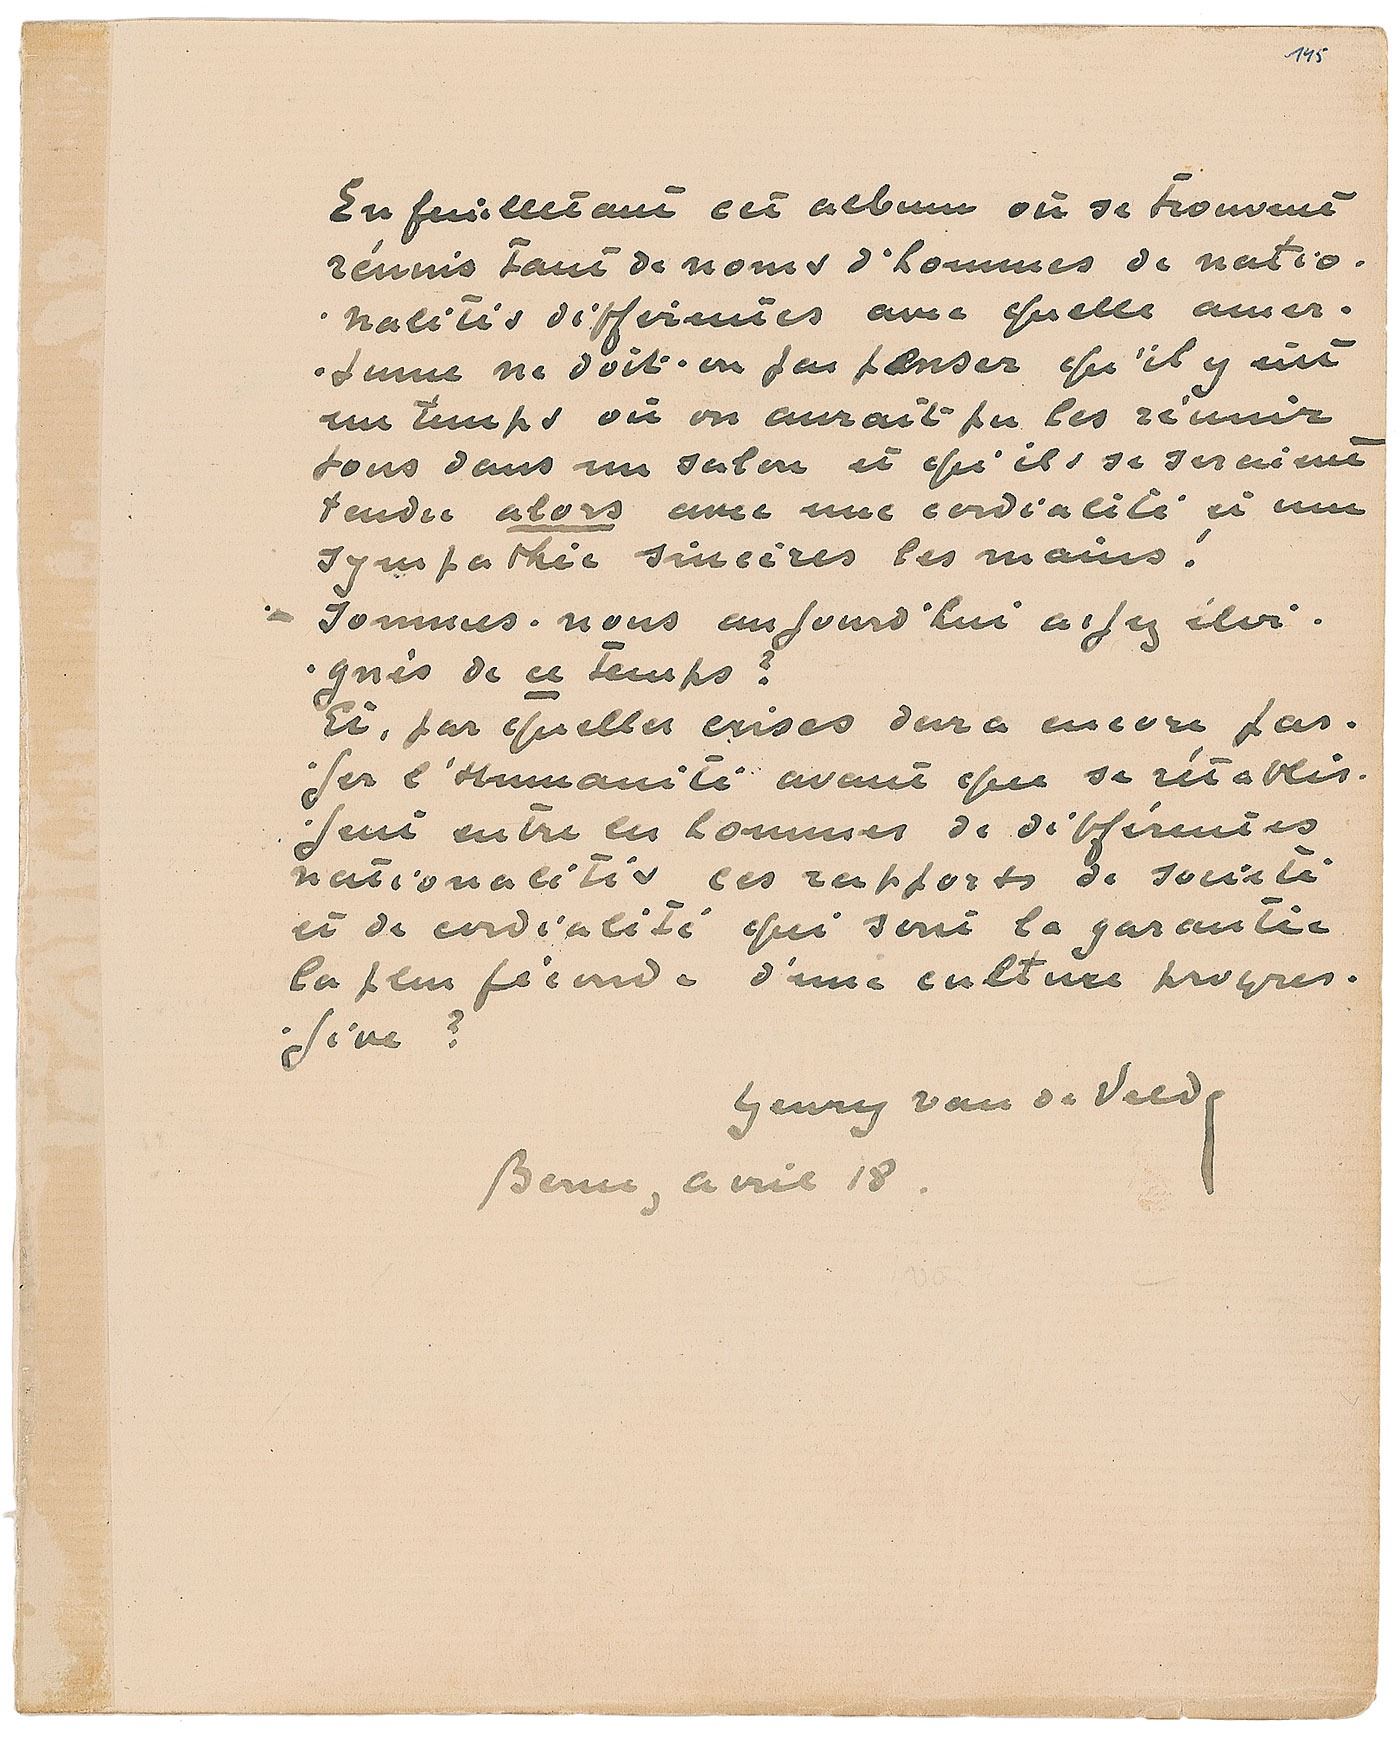 145
En feuilletant cet album où se trouvent
réunis tant de noms d'hommes de natio-
-nalités différentes avec quelle amer-
-tume ne doit-on pas penser qu'il y eût
un temps où on aurait pu les réunir
tous dans un salon et qu'ils se seraient
tendu alors avec une cordialité et une
sympathie sincères les mains!
- Sommes-nous aujourd'hui assez éloi-
-gnés de ce temps?
Et, par quelles crises devra encore pas-
-ser l'Humanité avant que se rétablis-
-sent entre les hommes de différentes
nationalités les rapports de société
et de cordialité qui sont la garantie
la plus féconde d'une culture progres-
-sive?
Henry van de Velde
Berne, avril 18.